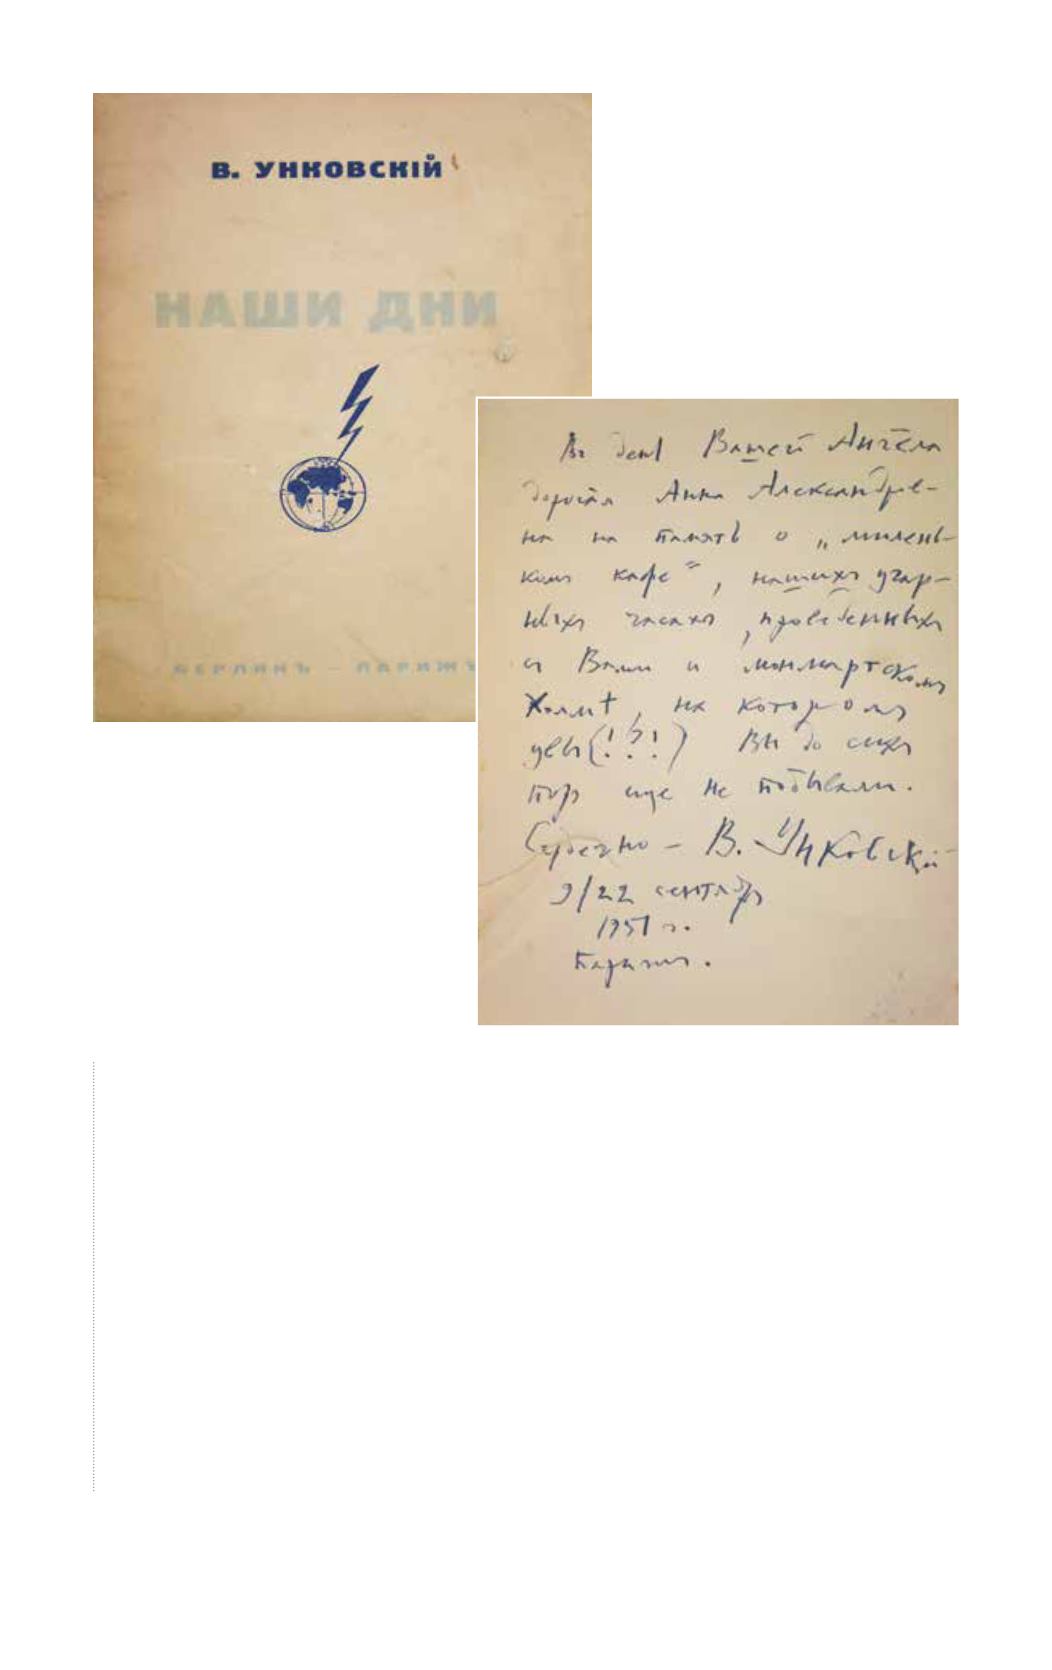 В. УНКОВСКІЙ
НАШИ ДНИ
БЕРЛИНЪ – ПАРИЖЪ
Въ день Вашего Ангела
дорогая Анна Александров-
на на память о „милень-
комъ кафе", нашихъ угар-
ныхъ часахъ, проведенныхъ
съ Вами и монмартскомъ
Холмѣ, на которомъ
увы (!?!) Вы до сихъ
поръ еще не побывали.
Сердечно – В. Унковскій
9/22 сентябр
1951 г.
Парижъ.